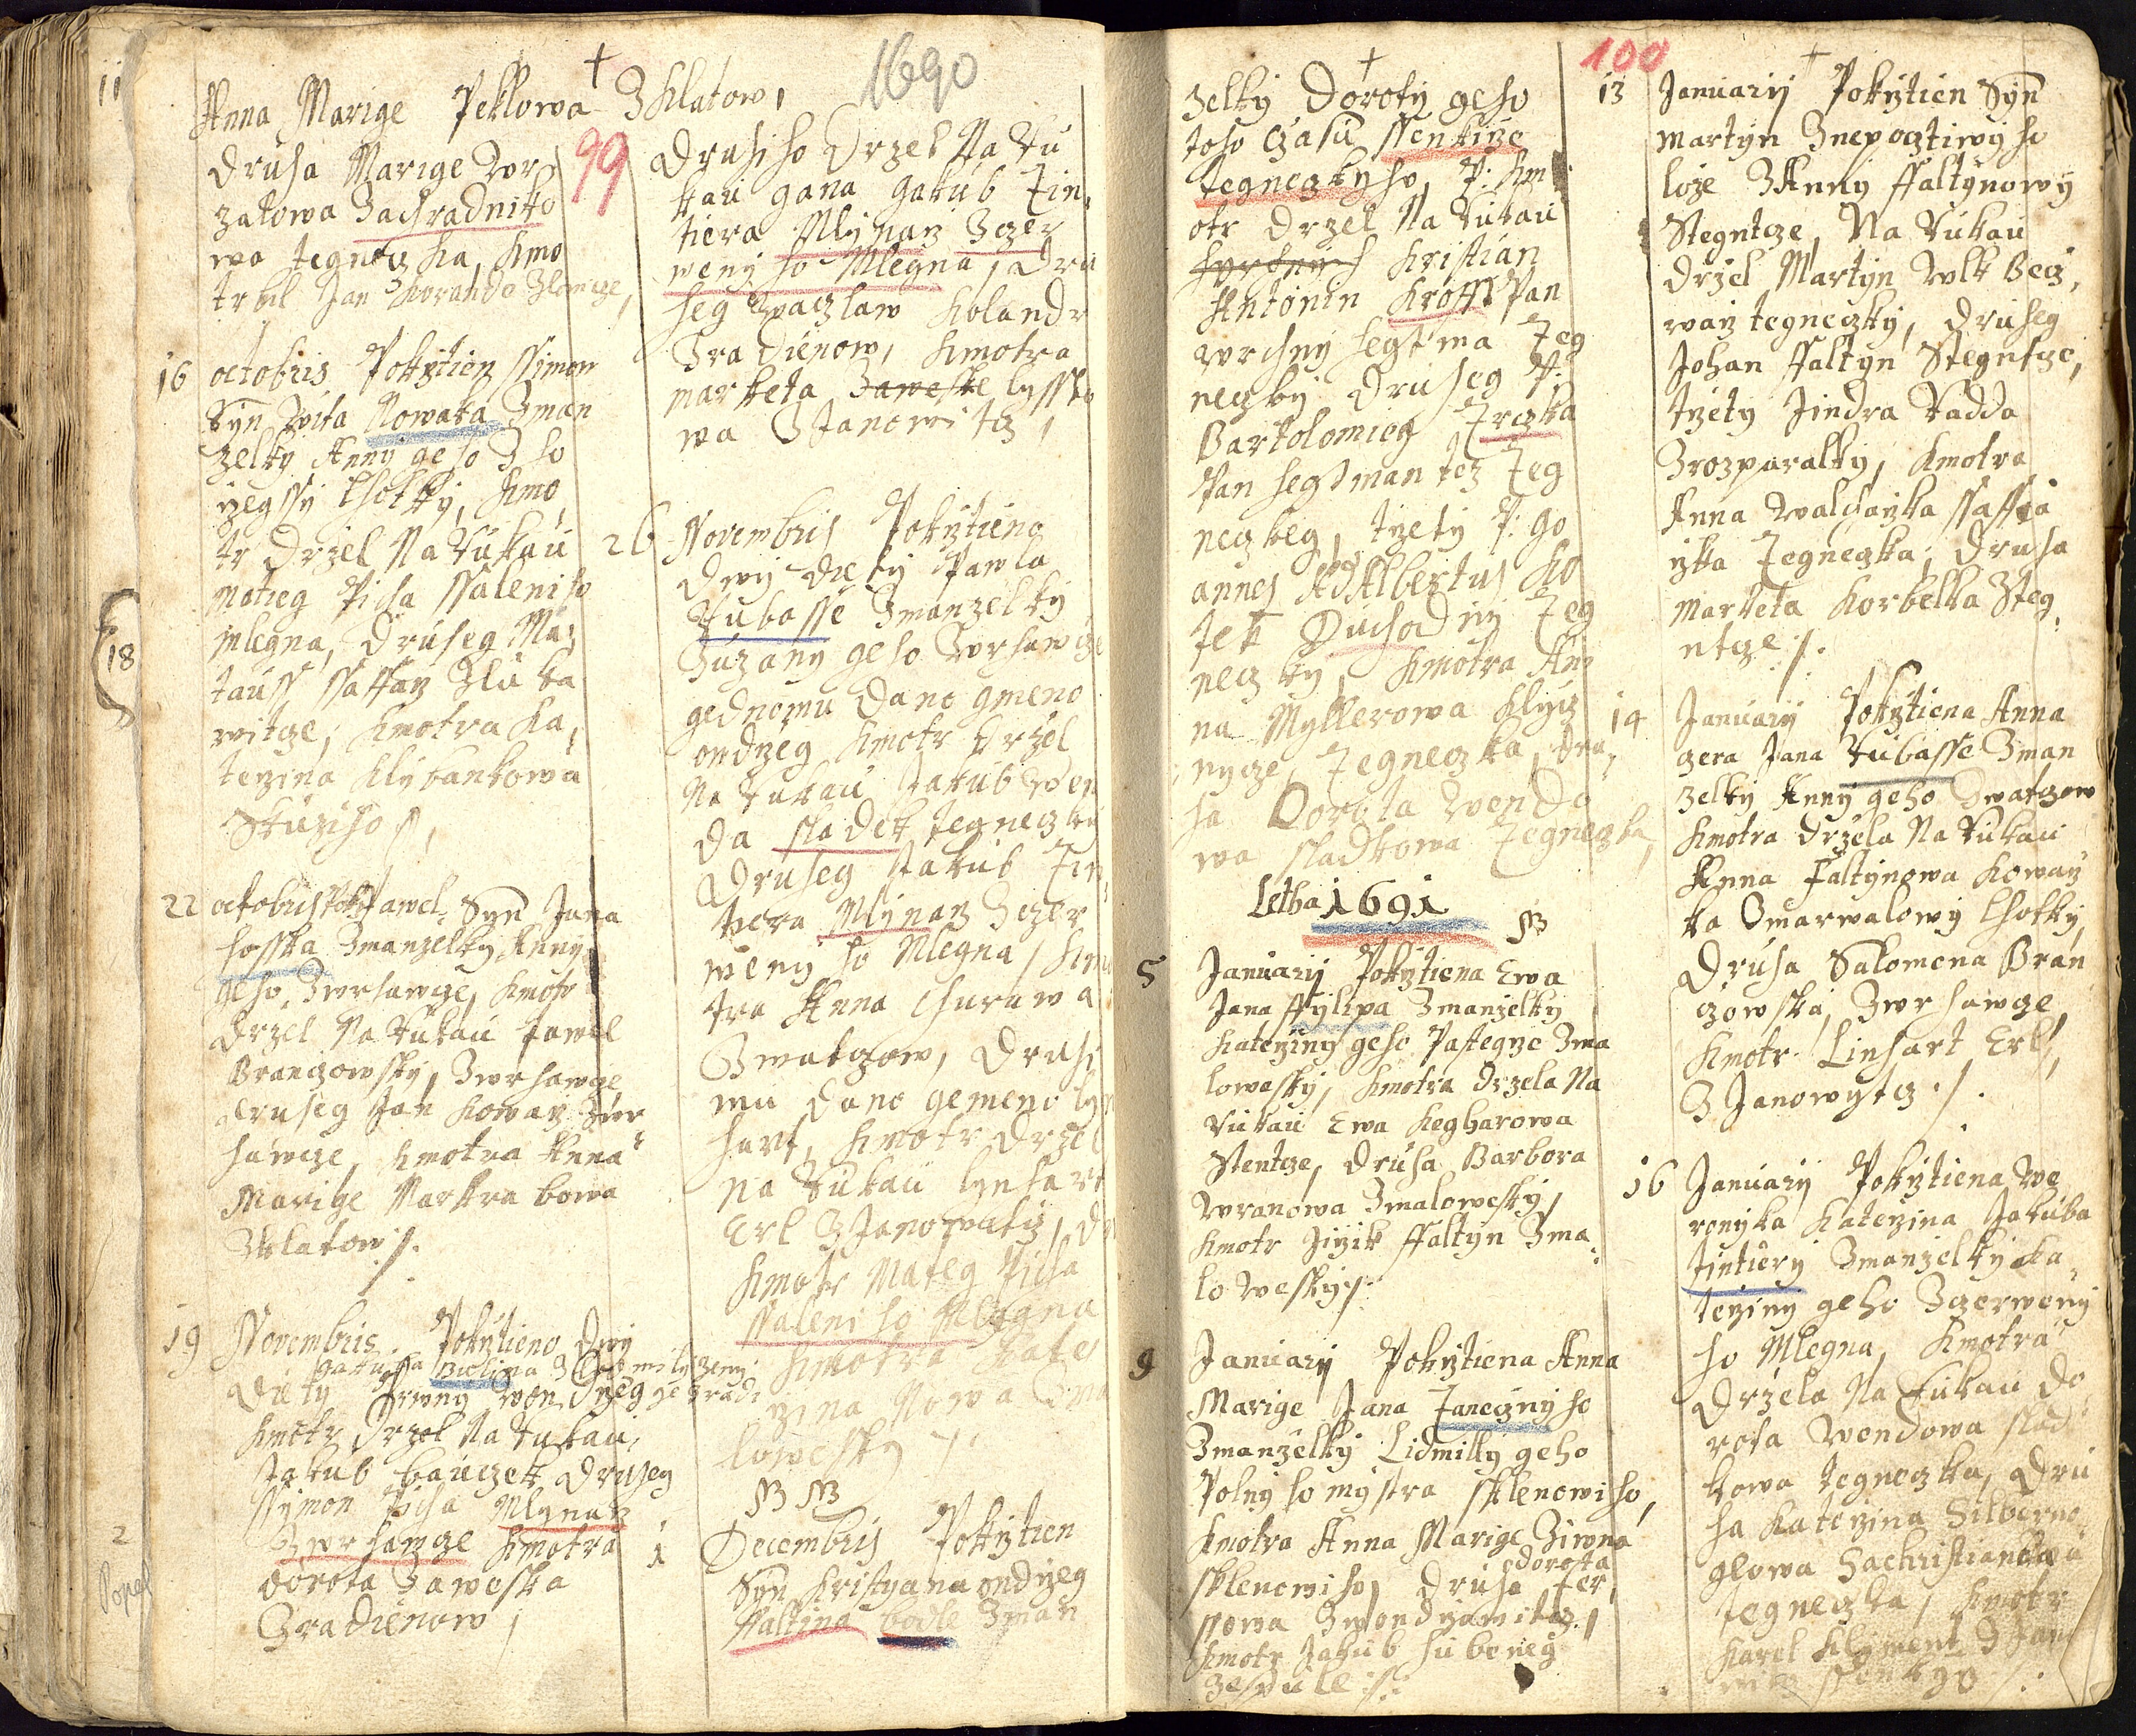 1690
99
Anna Marige Peklowa Z Klatow,
Druha Marige Wor
zakowa Zachradniko
wa Tegnecz ka, Kmo
tr bil Jan Koranda
16 octobris Pokrztien Ssimon
Syn Wita Nowaka Zman
zelky Anny geho Z ho
rzegssy Lhotky, Kmo,
tr Drzel Na Rukau
Matieg Picha Ssaleniho
Mlegna, Druheg Ma
taus Saffarz Zlu ka
witze, Kmotra Ka,
terzina Klybankowa
22 octobris Pokrz Pawel Syn Jana
hosska Zmanzelky Anny
geho, Zwrhawcze, Kmotr
Drzel Na Rukau Pawel
Branczowsky, Zwrhawcze
Druheg Jan Kowarz Zwr
hawcze, Kmotra Anna
Marige Markra bowa
Zklatow /.
19 Novembris Pokrztieno Dwy
Diety
Kmotr Drzel Na Rukau,
Jakub Bauczek Druheg
Ssymon Picha Mlynarz
Zwrhawcze Kmotra
Dorota Zaweska
Zradienow,
Druhiho Drzel Na Ru
kau Jana Jakub Tin,
tiera Mlynarz Zczer
weny ho Mlegna, Dru
heg Waczlaw Kolandr
Zradienow, Kmotra
Marketa Zaweske lyssko
wa Z Janowitcz,
26 Novembris Pokrztieno
Dwy diety Pawla
Kubasse Zmanzelky
Zuzany geho Zwrhawcze
gednomu Dano gmeno
ondrzeg Kmotr Drzel
Na Rukau Jakub Wen
da sladek Tegneczky
Druheg Jakub Tin,
tiera Mlynarz Zczer
weny ho Mlegna, Kmo
tra Anna Churawa
Zwatczow, Druhe
mu Dano gemeno lyn
hart, Kmotr Drzel
na Rukau lynhart
Erl Z Janowitcz, Dr
Kmotr Mateg Picha
Ssaleni ho Mlegna
Kmotra Kate
rzina Nowa Zma
lowesky /.
NB NB
1 Decembris Pokrztien
Syn Kristyana ondrzeg
Ffaltina Zman
100
zelky Doroty geho
toho Czasu Ssenkirze
Tegneczkyho, P: Km
otr Drzel Na Rukau
Kristian
Antonin Kroff Pan
wrchny hegtma Teg
neczky Druheg P:
Bartolomieg Trczka
Pan hegtman tez Teg
neczkeg, trzety P: Jo
annes Adalbertus Ko
tek Duchod ny Teg
necz ky, Kmotra An
na Myllerowa Klycz
nycze, Tegneczka, Dru
ha Dorota Wendo
wa sladkowa Tegneczka,
Letha 1691
NB
5 Januarij Pokrztiena Ewa
Jana Ffylipa Zmanzelky
Katerziny geho Pastegrze Zma
lowesky, Kmotra Drzela Na
Rukau Ewa Kegharowa
Stentcze, Druha Barbora
Wranowa Zmalowesky,
Kmotr Jirzik Ffaltyn Zma
lo wesky /.
9 Januarij Pokrztiena Anna
Marige Jana Janeczny ho
Zmanzelky Lidmilly geho
Polny ho mystra sklenowiho,
Kmotra Anna Marige Ziwna
Dorota
sklenowiho, Druha Fer
Kmotr Jakub hu beneg
13 Januarij Pokrztien Syn
Martyn Znepocztiwy ho
loze Z Anny Ffaltynowy
Stegntcze, Na Rukau
Drzel Martyn Wlk Becz,
warz tegneczky, Druheg
Johan Ffaltyn Stegntcze,
trzety Jindra Kadda
Zrozparalky, Kmotra
Anna Walcharzka Saffa
rzka Tegneczka, Druha
Marketa Korbelka Steg,
ntcze /.
14 January Pokrztiena Anna
Dcera Jana Kubasse Zman
zelky Anny geho Zwatczow
Kmotra Drzela Na Rukau
Anna Faltynowa Kowarz
ka Zmarwalowy Lhotky,
Druha Salomena Bran
czowska, Zwrhawcze,
Kmotr Linhart Erl,
Z Janowytcz /.
16 January Pokrztiena We
ronyka Katerzina Jakuba
Tintiery Zmanzelky Ka,
terziny geho Zczerweny
ho Mlegna, Kmotra
Drzela Na Rukau Do
rota Wendowa slad
kowa Tegneczka, Dru
ha Katerzina Silberna
glowa Sachristianowa
Tegneczka, Kmotr
Karel Klyment Z Jano